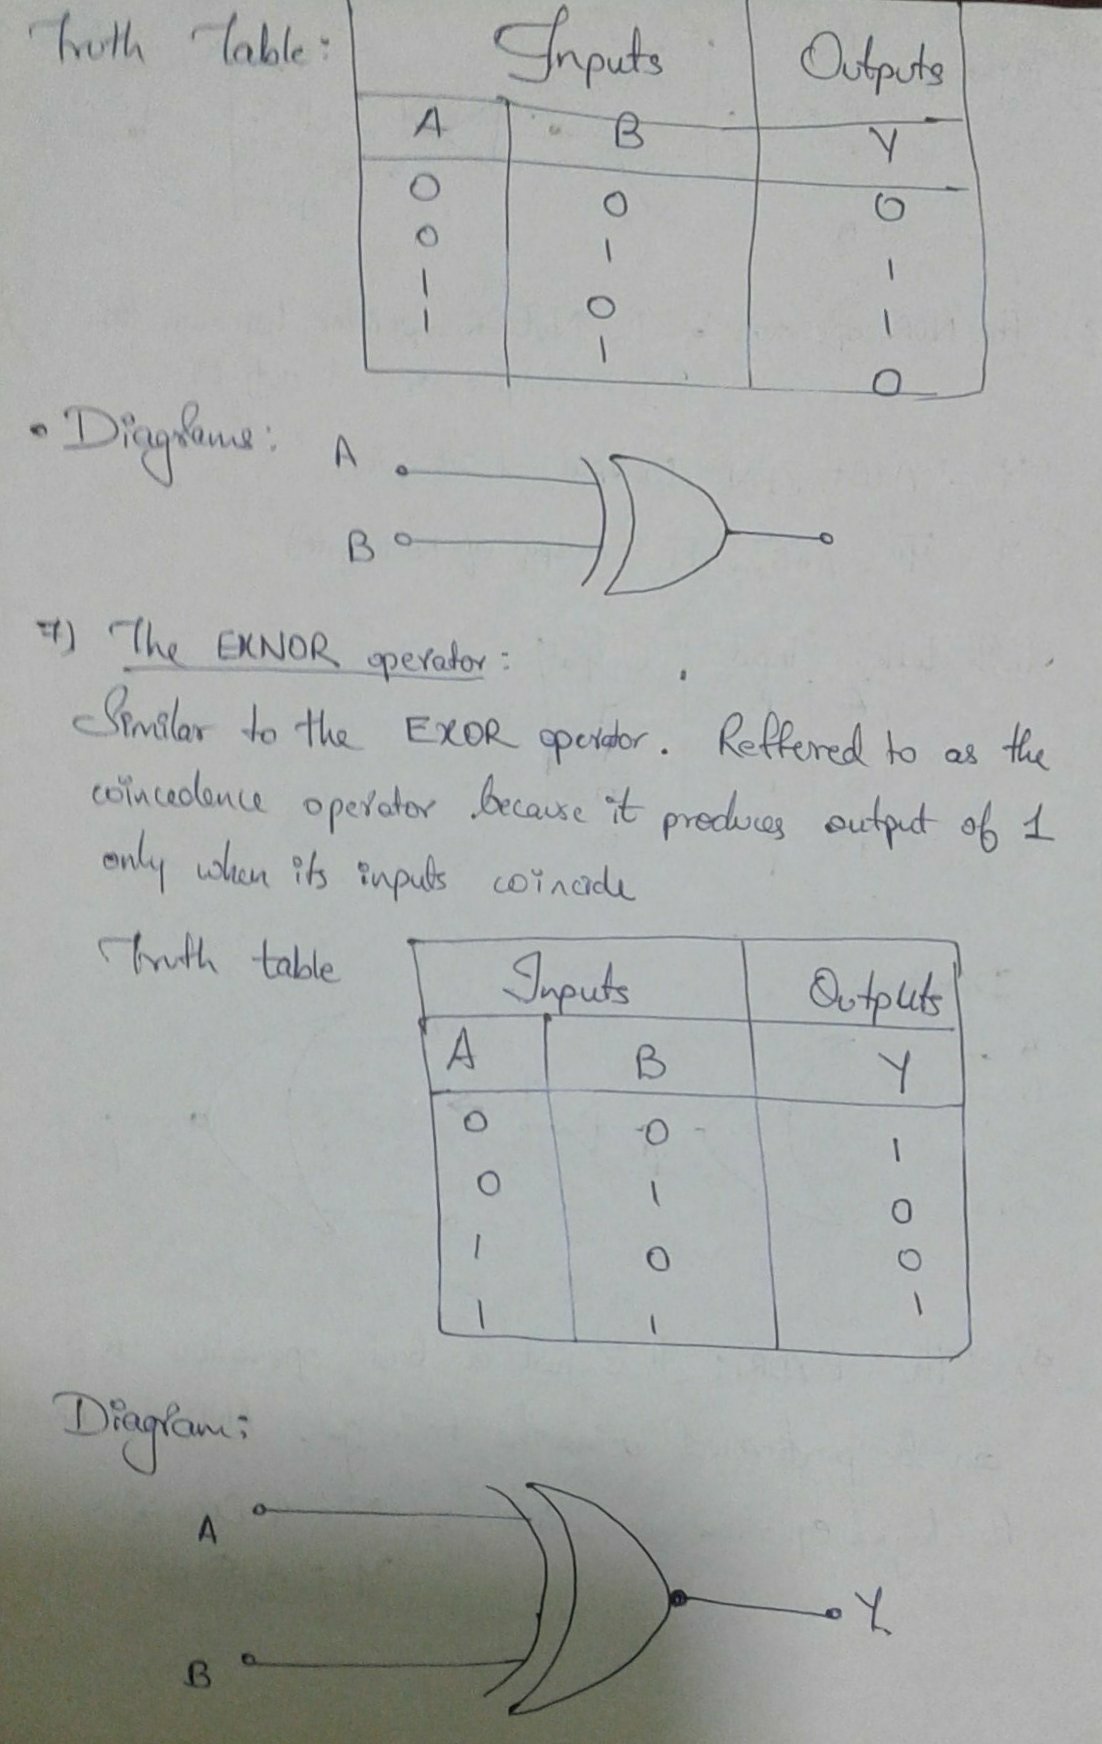 Truth Table:
Inputs Outputs
A B Y
0 0 0
0 1 1
1 0 1
1 1 0
• Diagrams:
A
B
7) The EXNOR operator:
Similar to the EXOR operator. Reffered to as the
coincedence operator because it produces output of 1
only when its inputs coincide
Truth table
Inputs Outputs
A B Y
0 0 1
0 1 0
1 0 0
1 1 1
Diagram:
A
Y
B